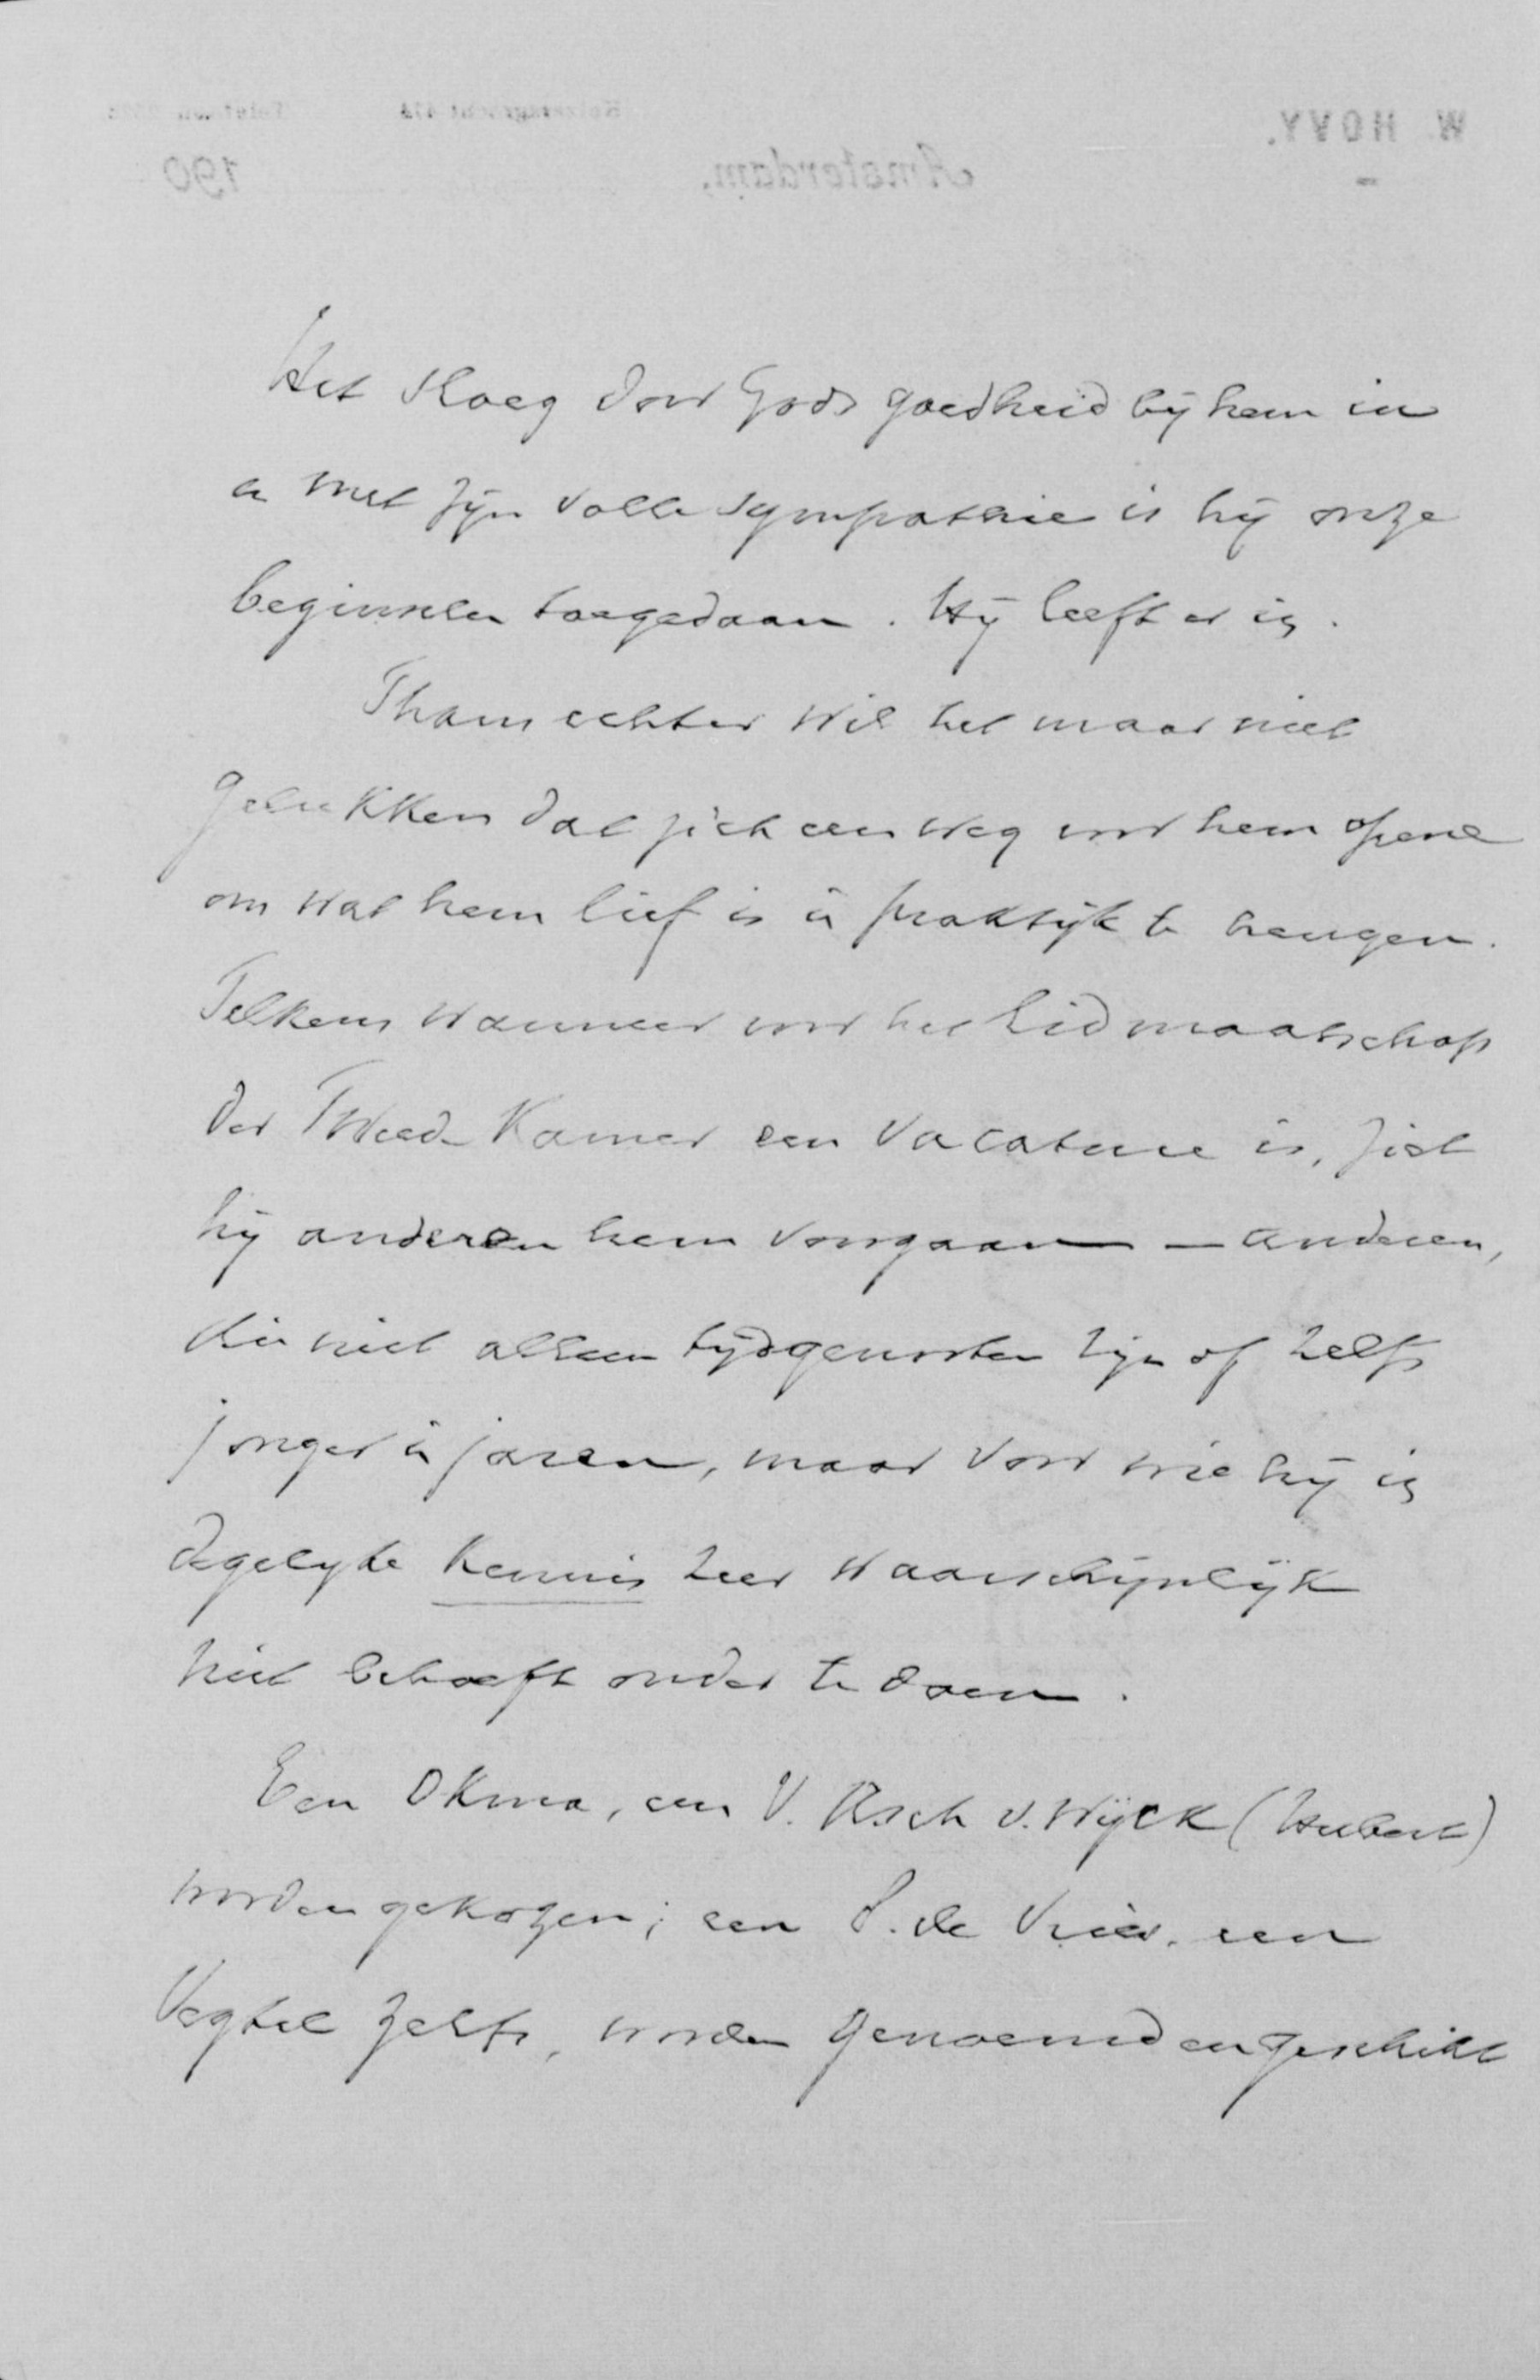 W. HOVY.
Amsterdam,
190
Het sloeg door Gods goedheid bij hem in
en met zijn volle sympathie is hij onze
beginselen toegedaan. Hij leeft er in.
Thans echter wil het maar niet
gelukken dat zich een weg voor hem opene
om wat hem lief is in praktijk te brengen.
Telkens wanneer voor het Lidmaatschap
der Tweede Kamer een vacature is, ziet
hij anderen hem voorgaan — anderen,
die niet alleen tijdgenooten zijn of zelfs
jonger in jaren, maar voor wie hij in
degelijke kennis zeer waarschijnlijk
niet behoeft onder te doen.
Een Okma, een V. Asch v. Wijck (Hubert)
worden gekozen; een S. de Vries, een
Vegtel zelfs, worden genoemd en geschikt